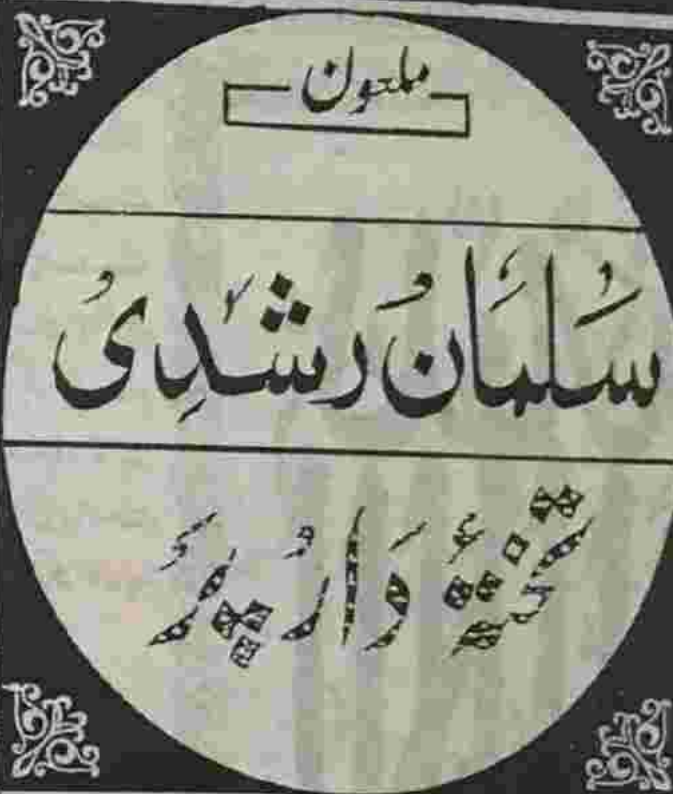 ملعون
سلمان رشدی
تختۂ دار پر